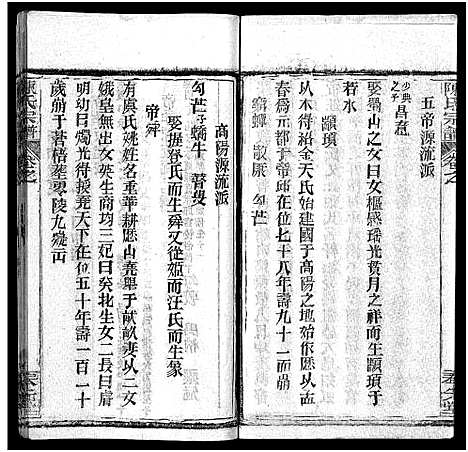 陳氏宗譜
五帝源流派
少典之子
昌意
娶蜀山之女曰女樞感瑤光貫月之祥而生顓頊于
若水
顓頊
以木得紹金天氏始建國于高陽之地始作厯以孟
春為元初于帝邱在位七十八年壽九十一而崩
句芒
高陽源流派
句芒 之子 蟜牛 瞽叟
娶握登氏而生舜又從姬而汪氏而生象
帝舜
有虞氏姚姓名重華耕厯山堯舉于畎畝妻以二女
娥皇無出女英生商均三妃曰癸北生女二長曰宵
明幼曰燭光得授堯天下在位五十年壽一百一十
歲崩于蒼梧塟零陵九嶷山